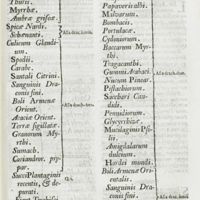 Thuris.
Myrrhæ.
Ambræ griseæ.
Spicæ Nardi.
Schœnanti.
Culicum Glandium.
Spodii.
Carabe.
Santali Citrini.
Sanguinis Draconis fini.
Boli Armenæ Orient.
Acaciæ Orient.
Terræ sigillatæ.
Granorum Myrthi.
Sumach.
Coriandror. ppar.
Succi Plantaginis recentis, & depurati.
Papaveris albi.
Malvarum.
Bombacis.
Portulacæ.
Cydoniorum.
Baccarum Myrthi.
Tragacanthi.
Gummi Arabici.
Nucum Pinear.
Pistachiorum.
Sacchari Candidi.
Penidiorum.
Glycyrrhizæ.
Mucilaginis Psillii.
Amigdalarum dulcium.
Hordei mundi.
Boli Armenæ Orientalis.
Sanguinis Draconis fini.